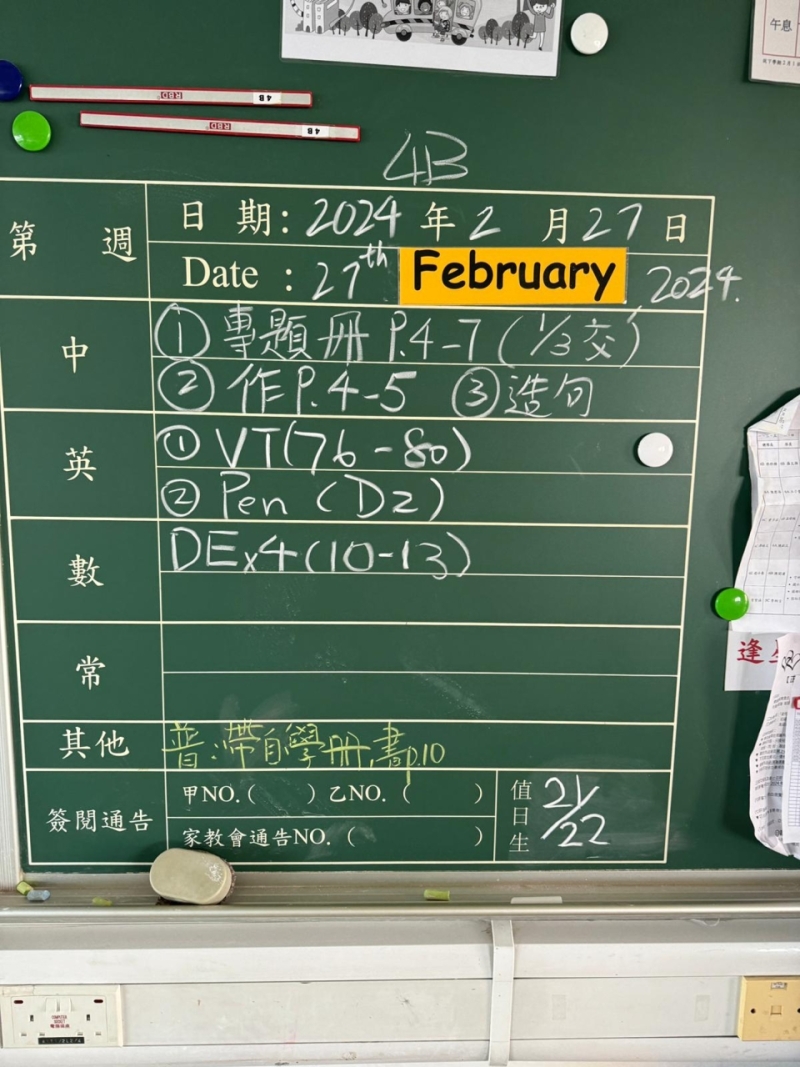 午息
4B RBD
4B RBD
4B
第 週
日 期: 2024 年 2 月 27 日
Date : 27th February, 2024.
中
① 專題冊 P.4-7 (1/3交)
② 作P.4-5 ③造句
英
① VT(76-80)
② Pen (D2)
數
DEx4(10-13)
常
其他
普:帶自學冊,書p.10
簽閱通告
甲NO.( ) 乙NO. ( )
家教會通告NO. ( )
值日生
21/22
逢